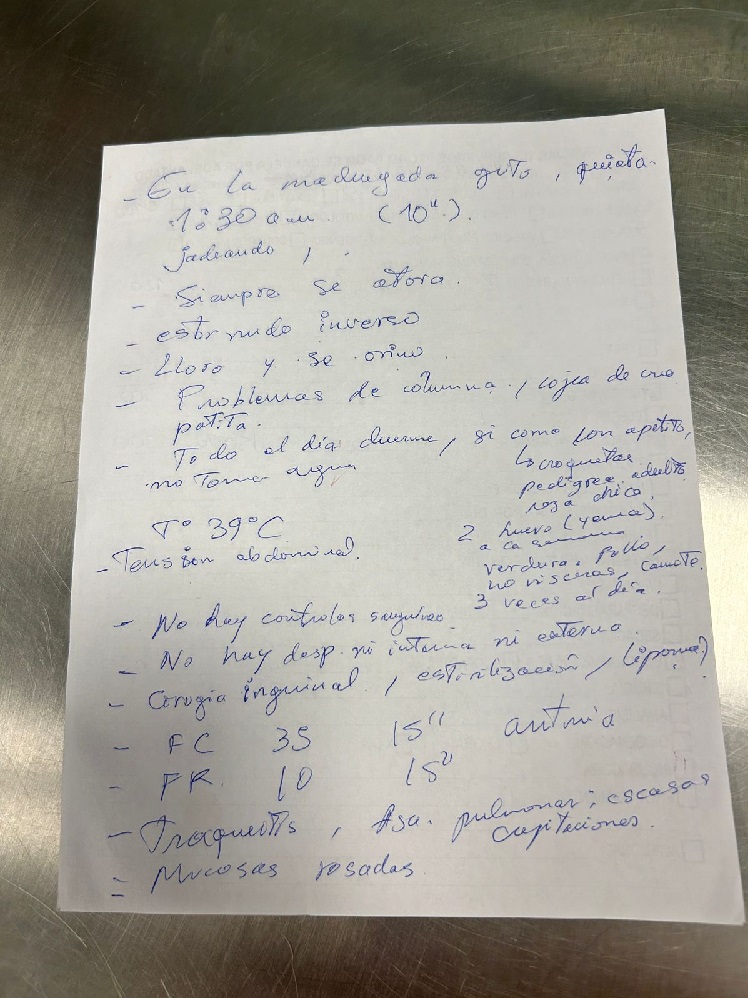 - En la madrugada grito, quieta.
1:30 a.m. (10").
jadeando,
- Siempre se atora.
- estornudo inverso
- Lloro y se orino.
- Problemas de columna, cojea de una
patita.
- Todo el día duerme, si come con apetito,
no Toma agua
↳ croquetas
pedigree adulto
raza chica.
2 huevo (yema).
a la semana
verdura, pollo,
no visceras, camote.
3 veces al día.
T° 39°C
- Tensión abdominal.
- No hay controles sanguineo.
- No hay desp. ni interna ni externa.
- Cirugía inguinal, esterilización, (lipoma)
- FC 35 15"
- FR. 10 15"
- Traqueitis, Asa. pulmonar; escasas
crepitaciones.
= Mucosas rosadas.